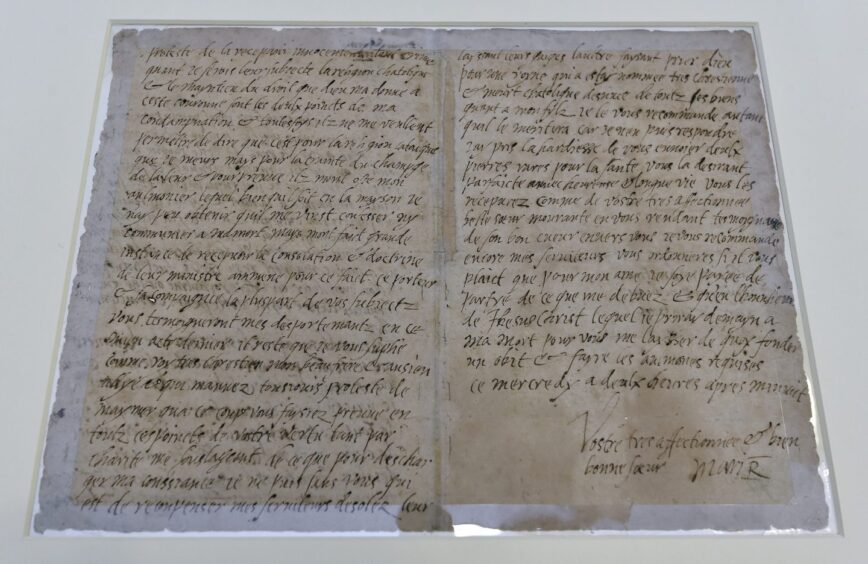 proteste de la recepvoir innocente
quant ie serois leur subiecte la religion chatolique
& le mayntien du droit que dieu ma donne a
ceste couronne sont les deulx points de ma
condampnation & toutesfoys ilz ne me veullent
permetre de dire que cest pour la religion catolique
que ie meurs mays pour la crainte du champge
de la leur & pour preuve ilz mont oste mon
aulmonier lequel bien quil soit en la mayson ie
nay peu obtenir quil me vinst confesser ny
communier a ma mort mays mont fait grande
instance de recepvoir la consolation & doctrine
de leur ministre ammene pour ce fait ce porteur
& sa compaignie la pluspart de vos subiectz
vous tesmoigneront mes desportemantz en ce
mien acte dernier il reste que ie vous suplie
comme roy tres chrestien mon beau frere & ansien
allye & qui mavvez tousiours proteste de
maymer qua ce coup vous faysiez preuve en
toutz ces poincts de vostre vertu tant par
charite me soulageant de ce que pour deschar
ger ma conssiance ie ne puis sans vous qui
est de recompenser mes serviteurs desolez leur
layssant leurs gages laultre faysant prier dieu
pour une royne qui a estay nommee tres chrestienne
& meurt chatolique desnuee de toutz ses biens
quant a mon filz ie le vous recommande autant
quil le meritera car ie nen puis respondre
iay pris la hardiesse de vous envoier deulx
pierres rares pour la sante vous la desirant
parfaicte & longue vie vous les
recepvrez comme de vostre tres affectionnee
belle soeur mourante en vous rendant tesmoygnage
de son bon cueur envers vous ie vous recommande
encore mes serviteurs vous ordonnerez si il vous
plaict que pour mon ame ie soye payee de
partye de ce que me debvez & en lhonneur
de Jhesus Christ lequel ie priray demayn a
ma mort pour vous me laysser de quoy fonder
un obit & fayre les aumones requises
ce mercredy a deulx heures apres minuict
Vostre tres affectionnee & bien
bonne soeur Mari R